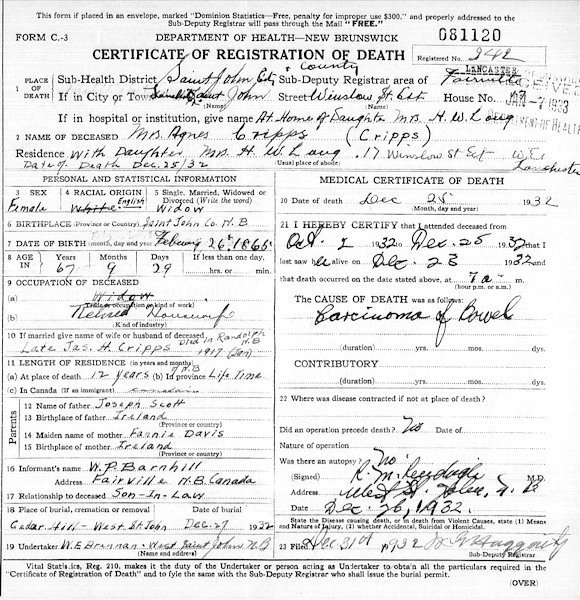 This form if placed in an envelope, marked "Dominion Statistics—Free, penalty for improper use $300." and properly addressed to the
Sub-Deputy Registrar will pass through the Mail "FREE."
FORM C.-3 DEPARTMENT OF HEALTH—NEW BRUNSWICK 081120
CERTIFICATE OF REGISTRATION OF DEATH Registered No. 942
& County LANCASTER
1 PLACE OF DEATH Sub-Health District Saint John City Sub-Deputy Registrar area of Fairville
If in City or Town Saint John (Name) Street Winslow St. Ext House No. JAN 7 1933
If in hospital or institution, give name At Home of Daughter Mrs. H. W. Long
2 NAME OF DECEASED Mrs. Agnes Cripps (Cripps)
Residence With Daughter Mrs. H. W. Long. 17 Winslow St Ext W.E.
Date of Death Dec 25/32 Usual place of abode: Lancaster
PERSONAL AND STATISTICAL INFORMATION
3 SEX 4 RACIAL ORIGIN 5 Single, Married, Widowed or Divorced (Write the word)
Female White English Widow
6 BIRTHPLACE (Province or Country) Saint John Co. N.B
7 DATE OF BIRTH (Month, day and year) February 26th 1865
8 AGE IN Years Months Days If less than one day,
67 9 29 hrs. or min.
9 OCCUPATION OF DECEASED
(a) Widow
(Trade or occupation or kind of work)
(b) Retired Housewife
(Kind of industry)
10 If married give name of wife or husband of deceased, Died in Randolph N.B
Late Jas. H. Cripps 1917 (Jan)
11 LENGTH OF RESIDENCE (in years and months) of N.B
(a) At place of death 12 Years (b) In province Life Time
(c) In Canada (If an immigrant) Canadian
Parents
12 Name of father Joseph Scott
13 Birthplace of father Ireland
(Province or country)
14 Maiden name of mother Fannie Davis
15 Birthplace of mother Ireland
(Province or country)
16 Informant's name W. P. Barnhill
Address Fairville N.B. Canada
17 Relationship to deceased Son-In-Law
18 Place of burial, cremation or removal Date of burial
Cedar Hill - West St John Dec. 27 1932
19 Undertaker W. E. Brennan - West Saint John N.B
MEDICAL CERTIFICATE OF DEATH
20 DATE OF DEATH Dec 25 1932
(Month, day and year)
21 I HEREBY CERTIFY that I attended deceased from
Oct. 1 1932 to Dec. 25 1932 that I
last saw her alive on Dec. 23 1932 and
that death occurred on the date stated above, at 7 a m.
(hour p.m. or a.m.)
The CAUSE OF DEATH was as follows:
Carcinoma of Bowel
(duration) yrs. mos. dys.
CONTRIBUTORY
(duration) yrs. mos. dys.
22 Where was disease contracted if not at place of death?
Did an operation precede death? No Date of
Nature of operation
Was there an autopsy? No
(Signed) M.D.
Address West St. John, N. B.
Date Dec. 26, 1932.
State the Disease causing death, or in death from Violent Causes, state (1) Means and Nature of Injury, (2) whether Accidental, Suicidal or Homicidal.
23 Filed Dec 31st 1932
Sub-Deputy Registrar
Vital Statistics, Reg. 210, makes it the duty of the Undertaker or person acting as Undertaker to obtain all the particulars required in the
"Certificate of Registration of Death" and to fyle the same with the Sub-Deputy Registrar who shall issue the burial permit.
(OVER)